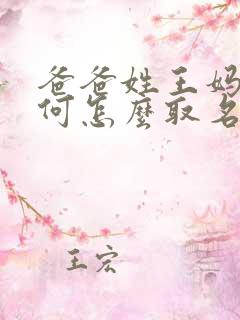 爸爸姓王妈
何怎麽取名
王宏